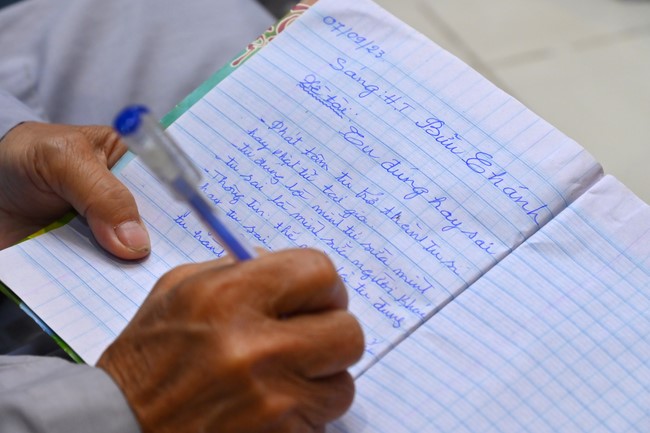 07/09/23
Sáng: HT Bửu Chánh
Đề tài:
Tu đúng hay sai
- Phát tâm tu trở thành tu sĩ
hay phật tử tại gia
- tu đúng là mình tự sửa mình
- tu sai là mình sửa người khác
- Thông tin thế
hay tu sai tu đúng
tu hành